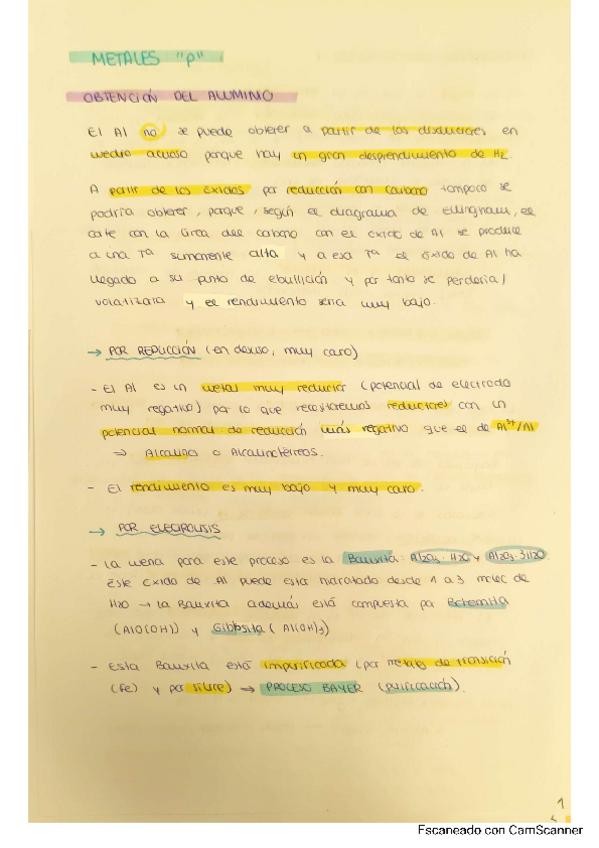 METALES "p"
OBTENCIÓN DEL ALUMINIO
El Al no se puede obtener a partir de las disoluciones en
medio acuoso porque hay un gran desprendimiento de H2.
A partir de los óxidos por reducción con carbono tampoco se
podría obtener, porque, según el diagrama de Ellingham, el
corte con la línea del carbono con el óxido de Al se produce
a una Tª sumamente alta y a esa Tª el óxido de Al ha
llegado a su punto de ebullición y por tanto se perdería/
volatizaría y el rendimiento sería muy bajo.
→ POR REDUCCIÓN (en desuso, muy caro)
- El Al es un metal muy reductor (potencial de electrodo
muy negativo) por lo que necesitaremos reductores con un
potencial normal de reducción más negativo que el de Al3+/Al
⇒ Alcalinos o Alcalinotérreos.
- El rendimiento es muy bajo y muy caro.
→ POR ELECTROLISIS
- La mena para este proceso es la Bauxita: Al2O3·H2O y Al2O3·3H2O
Este óxido de Al puede estar hidratado desde 1 a 3 molec de
H2O → la Bauxita además está compuesta por Bohemita
(AlO(OH)) y Gibbsita (Al(OH)3)
- Esta Bauxita está impurificada (por metales de transición
(Fe) y por sílice) → PROCESO BAYER (purificación).
1
Escaneado con CamScanner